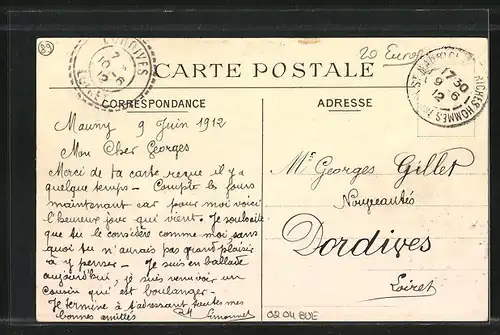 89
20 Euro
DORDIVES
7
10 -6
12
LOIRET
ST MAURICE AUX RICHES HOMMES
17 30
9 - 6
12
CARTE POSTALE
CORRESPONDANCE
ADRESSE
Mauny 9 Juin 1912
Mon Cher Georges
Merci de ta carte reçue il y a
quelque temps - Compte les jours
maintenant car pour moi voici
l'heureux jour qui vient. Je souhaite
que tu le considère comme moi sans
quoi tu n'aurais pas grand plaisir
à y penser - Je suis en ballade
aujourd'hui, je suis venu voir un
cousin qui est boulanger -
Je termine à t'adressant toutes mes
bonnes amitiés
Simonnet
Mr Georges Gillet
Nouveautés
Dordives
Loiret
02 04 BUE